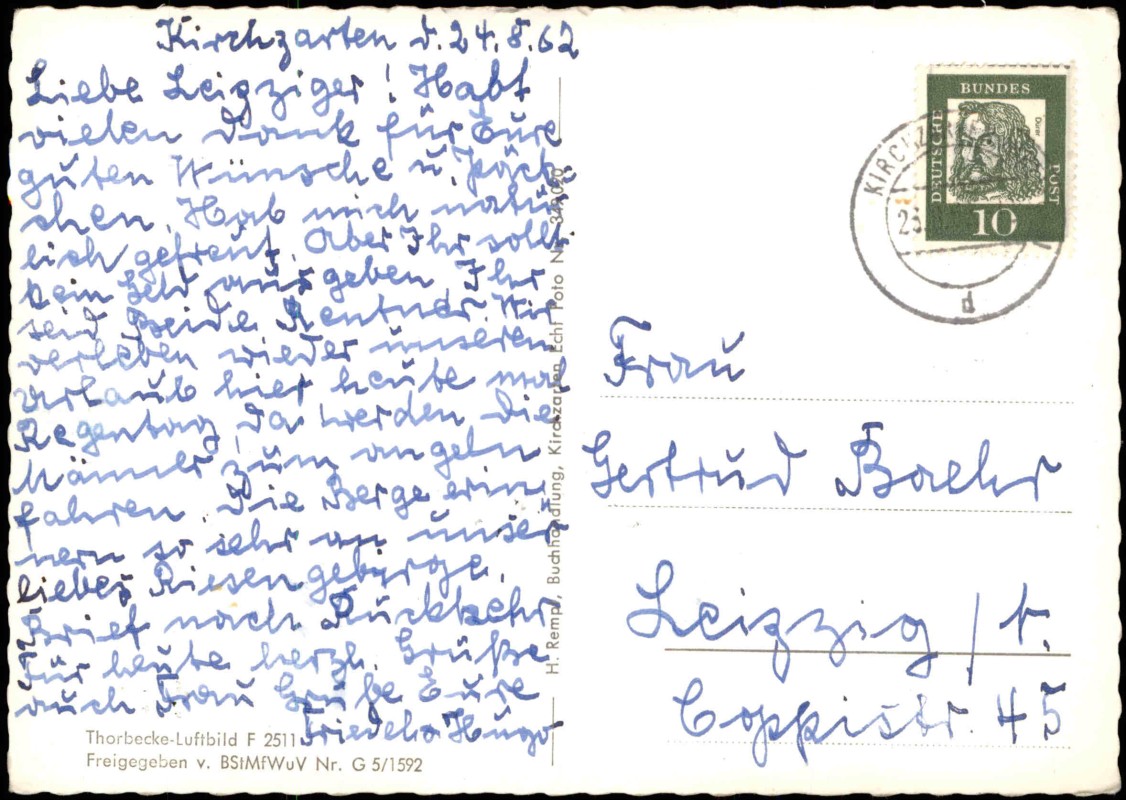 Kirchzarten d. 24.8.62
Liebe Leipziger! Habt
vielen Dank für Eure
guten Wünsche u. Päck-
chen. Hab mich natür
lich gefreut. Aber Ihr sollt
kein Geld ausgeben, Ihr
seid Beide Rentner. Wir
verleben wieder unseren
Urlaub hier heute mal
Regentag, da werden die
Männer zum angeln
fahren. Die Berge erin
nern so sehr an unser
liebes Riesengebirge.
Brief nach Rückkehr
Für heute herzl. Grüße
auch Frau Eure
Friedel u. Hugo
Thorbecke-Luftbild F 2511
Freigegeben v. BStMfWuV Nr. G 5/1592
H. Rempf, Buchhandlung, Kirchzarten Echt Foto Nr.
DEUTSCHE BUNDES POST
Dürer
10
KIRCHZ
d
Frau
Gertrud Baehr
Leipzig / N.
Coppistr. 45